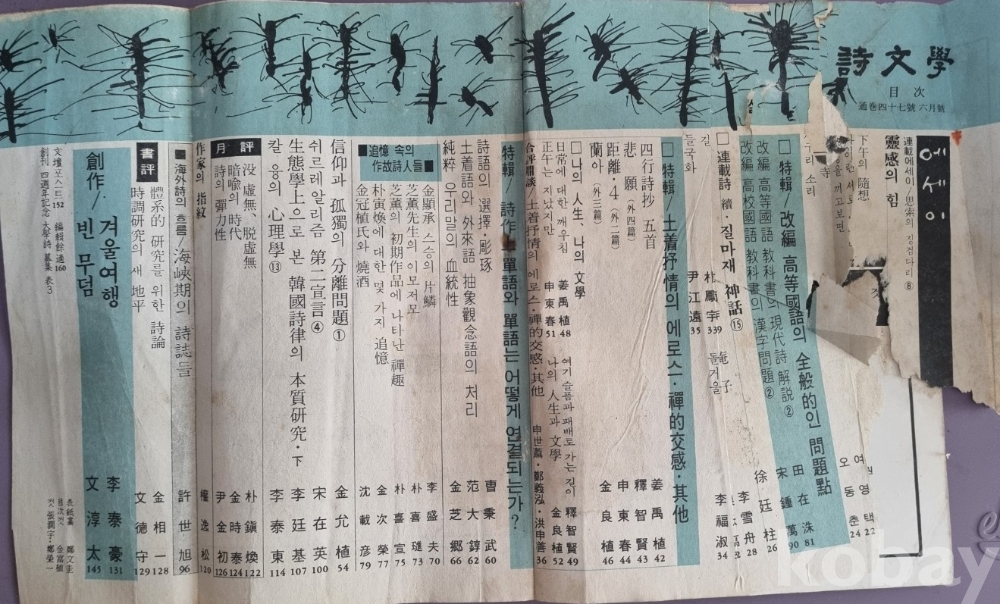 詩文學
目次
通巻四十七號 六月號
에세이
連載에세이/思索의 징검다리⑧
靈感의 힘
下午의 隨想
눈을 감고보면
우리 소리
여영택 22
오동춘 24
□特輯/改編 高等國語의 全般的인 問題點
改編 高等國語 教科書의 現代詩 解說② 田在洙 81
改編 高校國語 教科書의 漢字問題② 宋鍾萬 90
徐廷柱 26
李雪舟 28
李福淑 34
□連載詩 續・질마재 神話⑮
돌거울
朴鳳宇 33
尹江遠 35
길
들국화
□特輯/土着抒情의 에로스・禪的交感・其他
四行詩抄 五首 姜禹植 42
悲願(外四篇) 釋智賢 43
距離・4(外二篇) 申東春 44
蘭아(外三篇) 金良植 46
□나의 人生、나의 文學
日常에 대한 깨우침 姜禹植 48
여기 슬픔과 패배로 가는 길이 釋智賢 49
正午는 지났지만 申東春 51
나의 人生과 文學 金良植 52
合評鼎談/土着抒情의 에로스・禪的交感・其他 申世薰・鄭義泓・洪申善 36
特輯/詩作・單語와 單語는 어떻게 연결되는가?
詩語의 選擇・彫琢 曺秉武 60
土着語와 外來語 抽象觀念語의 처리 范大錞 62
純粹 우리말의 血統性 金芝鄕 65
■追憶 속의 作故詩人들■
金顯承 스승의 片鱗 李盛夫 70
芝薰先生의 이모저모 朴喜璡 73
芝薰의 初期作品에 나타난 禪趣 朴喜宣 75
朴寅煥에 대한 몇 가지 追憶 金次榮 77
金冠植氏와 燒酒 沈載彦 79
信仰과 孤獨의 分離問題① 金允植 54
쉬르레알리즘 第二宣言④ 宋在英 100
生態學上으로 본 韓國詩律의 本質研究・下 李廷基 107
칼 융의 心理學⑬ 李泰東 114
月評
没 虛無、脱虛無 朴鎭煥 122
暗喩의 時代 金時泰 124
詩의 彈力性 尹金初 126
作家의 指紋 權逸松 120
■海外詩의 흐름/海峽期의 詩誌들 許世旭 96
書評
體系的 研究를 위한 詩論 金相一 128
時調研究의 새 地平 文德守 129
創作/
겨울여행 李泰豪 131
빈 무덤 文淳太 145
文壇포스트 152 編輯餘適 160
創刊 四週年記念 大學詩 募集 表3
表紙畫 鄭文圭
目次컷 金富權
컷 張潤宇・鄭榮一
kobay